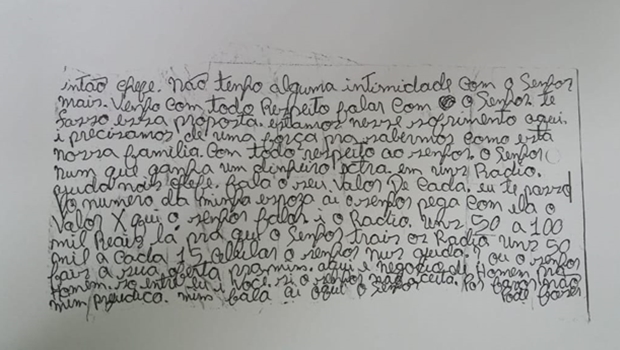 intão chefe. não tenho alguma intimidade com o Senhor
mais. Venho com todo Respeito falar com o Senhor te
fasso essa proposta. estamos nesse sofrimento aqui.
i precizamos de uma força pra sabermos como está
nossa familia. Com todo respeito ao senhor. o Senhor
num quer ganha um dinheiro extra. em uns Radio.
ajuda nois chefe. fala o seu Valor De Cada. eu te passo
o numero da minha espoza ai o senhor pega com ela o
Valor X qui o senhor falar i o Radio. uns 50 a 100
mil Reais lá. pra que o Senhor trais os Radio uns 50
mil a cada 15 celular o senhor nus ajuda? ou o senhor
fais a sua oferta pra mim. aqui é negocio di Homem pra
Homem. so entre eu i você. si o senhor não aceita. Por favor não
mim prejudica. mim fala ai oqui o senhor Pode fazer